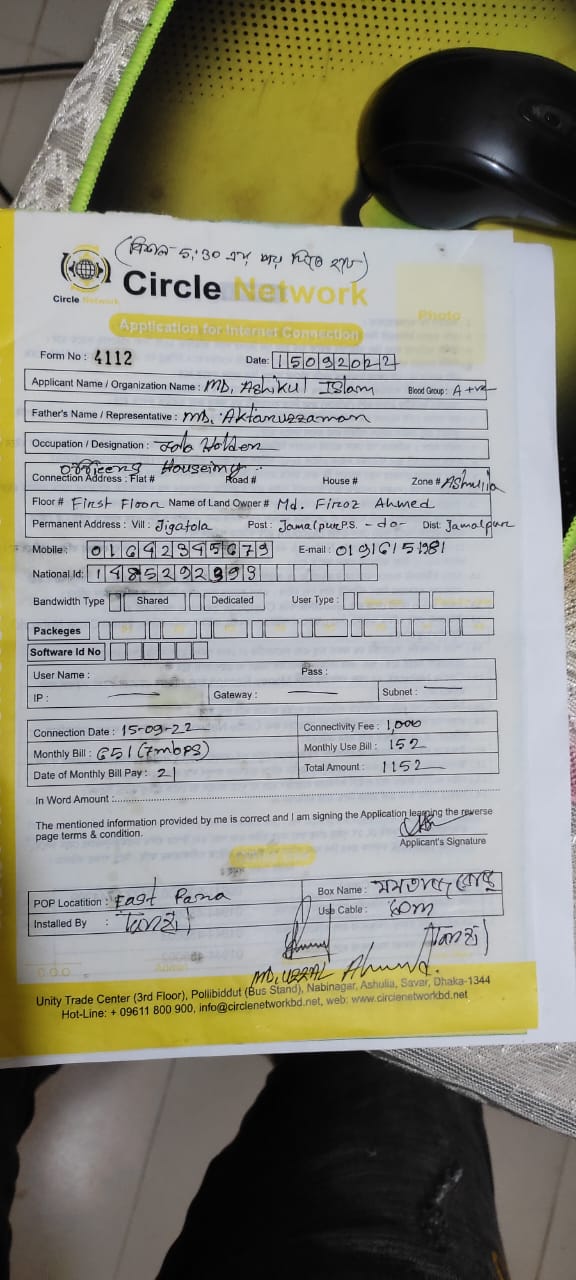 (বিকাল ৫:৩০ এ,
Circle Network
Circle Network
Photo
Application for Internet Connection
Form No : 4112 Date: 15092022
Applicant Name / Organization Name : MD. Ashikul Islam Blood Group : A+ve
Father's Name / Representative : MD. Aktaruzzaman
Occupation / Designation : Job Holder
Houseing
Connection Address : Flat # Road # House # Zone # Ashulia
Floor # First Floor Name of Land Owner # Md. Firoz Ahmed
Permanent Address : Vill : Jigatola Post : Jamalpur P.S. - do- Dist: Jamalpur
Mobile : 01642345679 E-mail : 01916151981
National Id: 1485292993
Bandwidth Type Shared Dedicated User Type :
Packeges
Software Id No
User Name : Pass :
IP : — Gateway : — Subnet : —
Connection Date : 15-09-22 Connectivity Fee : 1,000
Monthly Bill : 651 (7mbps) Monthly Use Bill : 152
Date of Monthly Bill Pay : 21 Total Amount : 1152
In Word Amount :
The mentioned information provided by me is correct and I am signing the Application learning the reverse
page terms & condition.
Applicant's Signature
POP Locatition : East Para Box Name :
Installed By : Use Cable : 60m
C.O.O
Unity Trade Center (3rd Floor), Pollibiddut (Bus Stand), Nabinagar, Ashulia, Savar, Dhaka-1344
Hot-Line: + 09611 800 900, info@circlenetworkbd.net, web: www.circlenetworkbd.net